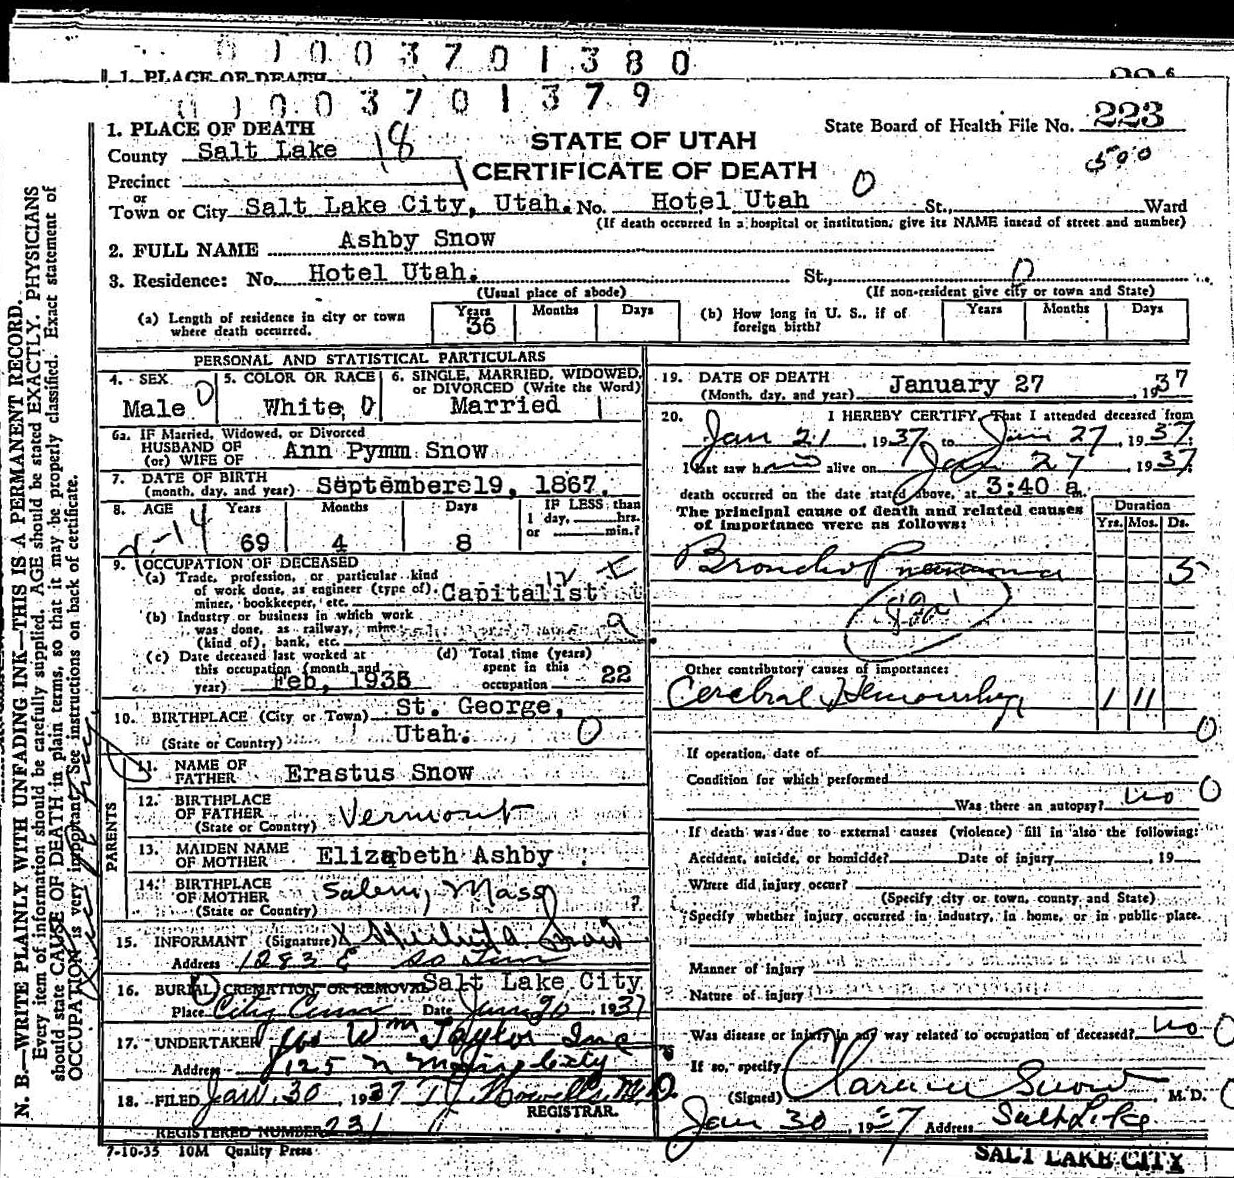 0 ) 0 0 3 7 0 1 3 8 0
1. PLACE OF DEATH
0 ) 0 0 3 7 0 1 3 7 9
1. PLACE OF DEATH
STATE OF UTAH
CERTIFICATE OF DEATH
State Board of Health File No. 223
500
County Salt Lake 18
Precinct
or
Town or City Salt Lake City, Utah. No. Hotel Utah St., Ward
0
(If death occurred in a hospital or institution, give its NAME instead of street and number)
2. FULL NAME Ashby Snow
3. Residence: No. Hotel Utah. St., 0
(Usual place of abode) (If non-resident give city or town and State)
(a) Length of residence in city or town where death occurred. Years 36 Months Days
(b) How long in U. S., if of foreign birth? Years Months Days
PERSONAL AND STATISTICAL PARTICULARS
4. SEX Male 0
5. COLOR OR RACE White 0
6. SINGLE, MARRIED, WIDOWED, or DIVORCED (Write the Word) Married 1
6a. IF Married, Widowed, or Divorced
HUSBAND OF
(or) WIFE OF Ann Pymm Snow
7. DATE OF BIRTH
(month, day, and year) September 19, 1867
8. AGE Years 69 Months 4 Days 8 IF LESS than 1 day, hrs. or min.?
9. OCCUPATION OF DECEASED
(a) Trade, profession, or particular kind
of work done, as engineer (type of), Capitalist
miner, bookkeeper, etc.
(b) Industry or business in which work
was done, as railway, mine
(kind of), bank, etc.
(c) Date deceased last worked at
this occupation (month and
year) Feb, 1935
(d) Total time (years)
spent in this
occupation 22
10. BIRTHPLACE (City or Town) St. George,
(State or Country) Utah. 0
PARENTS
11. NAME OF
FATHER Erastus Snow
12. BIRTHPLACE
OF FATHER Vermont
(State or Country)
13. MAIDEN NAME
OF MOTHER Elizabeth Ashby
14. BIRTHPLACE
OF MOTHER Salem, Mass
(State or Country)
15. INFORMANT (Signature) Snow
Address 1283 E So Tem
16. BURIAL CREMATION OR REMOVAL Salt Lake City
Place City Cem Date Jan 30, 1937
17. UNDERTAKER Jos Wm Taylor Inc
Address 125 N Main City
18. FILED Jan. 30, 1937 T J Howells M.D.
REGISTRAR.
REGISTERED NUMBER 231
7-10-35 10M Quality Press
19. DATE OF DEATH
(Month, day, and year) January 27, 1937
20. I HEREBY CERTIFY, That I attended deceased from
Jan 21, 1937 to Jan 27, 1937.
I last saw him alive on Jan 27, 1937
death occurred on the date stated above, at 3:40 a m.
The principal cause of death and related causes
of importance were as follows:
Duration
Yrs. Mos. Ds.
Broncho Pneumonia 5
Other contributory causes of importance:
Cerebral Hemorrhage 1 11
0
If operation, date of
Condition for which performed
Was there an autopsy? no 0
If death was due to external causes (violence) fill in also the following:
Accident, suicide, or homicide? Date of injury , 19
Where did injury occur?
(Specify city or town, county and State)
Specify whether injury occurred in industry, in home, or in public place.
Manner of injury
Nature of injury
Was disease or injury in any way related to occupation of deceased? no 0
If so, specify
(Signed) Clarence Snow, M. D.
Jan 30, 1937 Address Salt Lake
SALT LAKE CITY
N. B.—WRITE PLAINLY WITH UNFADING INK—THIS IS A PERMANENT RECORD.
Every item of information should be carefully supplied. AGE should be stated EXACTLY. PHYSICIANS
should state CAUSE OF DEATH in plain terms, so that it may be properly classified. Exact statement of
OCCUPATION is very important. See instructions on back of certificate.